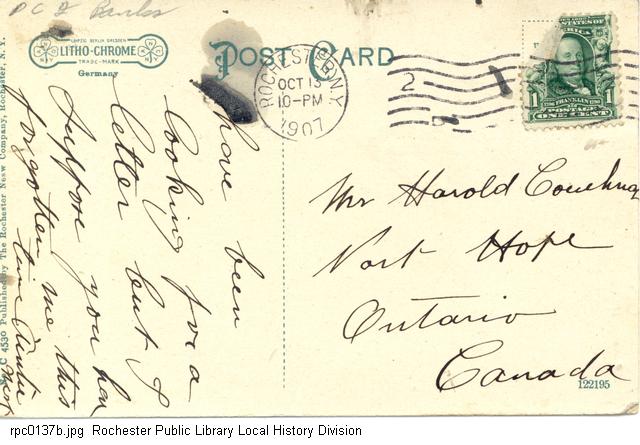 PC 2 Banks
LEIPZIG BERLIN DRESDEN
LITHO-CHROME
TRADE-MARK
Germany
POST CARD
ROCHESTER, N.Y.
OCT 13
10-PM
1907
2
STATES OF
1 FRANKLIN 1
POSTAGE
ONE CENT
have been
looking for a
letter but I
suppose you have
forgotten me this
time
Mr Harold
Port Hope
Ontario
Canada
122195
C 4530 Published by The Rochester News Company, Rochester, N. Y.
rpc0137b.jpg Rochester Public Library Local History Division